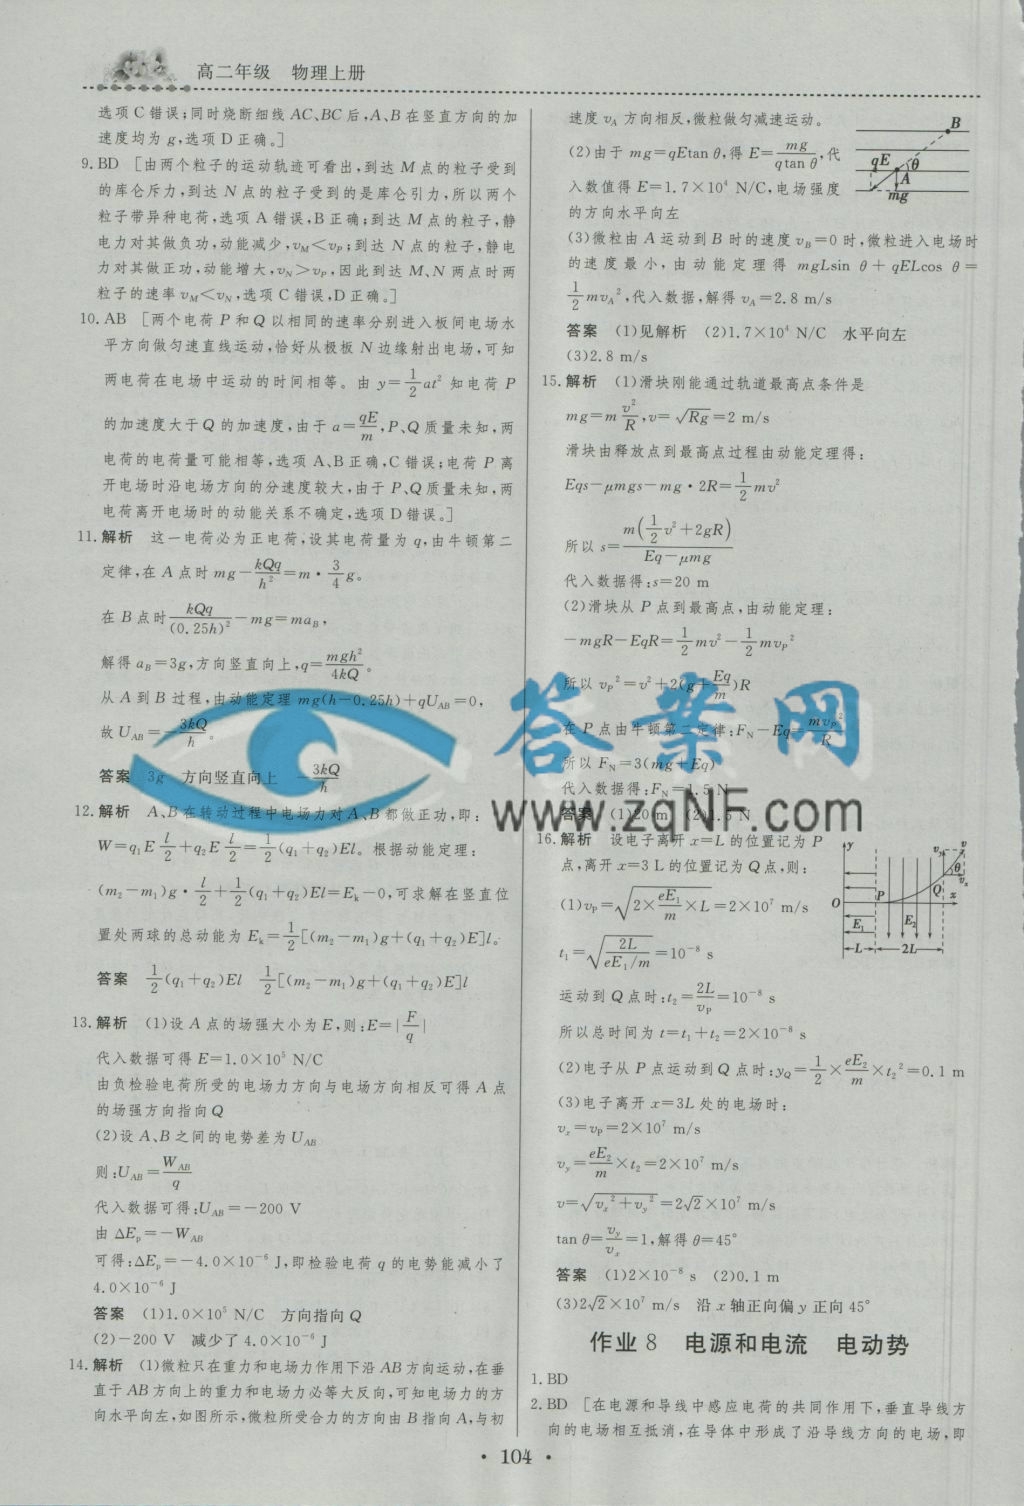 高二年级　物理上册
选项C错误;同时烧断细线AC、BC后,A、B在竖直方向的加
速度均为g,选项D正确。]
9.BD　[由两个粒子的运动轨迹可看出,到达M点的粒子受到
的库仑斥力,到达N点的粒子受到的是库仑引力,所以两个
粒子带异种电荷,选项A错误,B正确;到达M点的粒子,静
电力对其做负功,动能减少,v_M<v_P;到达N点的粒子,静电
力对其做正功,动能增大,v_N>v_P,因此到达M、N两点时两
粒子的速率v_M<v_N,选项C错误,D正确。]
10.AB　[两个电荷P和Q以相同的速率分别进入板间电场水
平方向做匀速直线运动,恰好从极板N边缘射出电场,可知
两电荷在电场中运动的时间相等。由y=1/2 at²知电荷P
的加速度大于Q的加速度,由于a=qE/m,P、Q质量未知,两
电荷的电荷量可能相等,选项A、B正确,C错误;电荷P离
开电场时沿电场方向的分速度较大,由于P、Q质量未知,两
电荷离开电场时的动能关系不确定,选项D错误。]
11.解析　这一电荷必为正电荷,设其电荷量为q,由牛顿第二
定律,在A点时mg-kQq/h²=m·3/4 g。
在B点时kQq/(0.25h)²-mg=ma_B,
解得a_B=3g,方向竖直向上,q=mgh²/4kQ。
从A到B过程,由动能定理mg(h-0.25h)+qU_AB=0,
故U_AB=-3kQ/h。
答案　3g　方向竖直向上　-3kQ/h
12.解析　A、B在转动过程中电场力对A、B都做正功,即:
W=q₁E l/2+q₂E l/2=1/2(q₁+q₂)El。根据动能定理:
(m₂-m₁)g·l/2+1/2(q₁+q₂)El=E_k-0,可求解在竖直位
置处两球的总动能为E_k=1/2[(m₂-m₁)g+(q₁+q₂)E]l。
答案　1/2(q₁+q₂)El　1/2[(m₂-m₁)g+(q₁+q₂)E]l
13.解析　(1)设A点的场强大小为E,则:E=|F/q|
代入数据可得E=1.0×10⁵ N/C
由负检验电荷所受的电场力方向与电场方向相反可得A点
的场强方向指向Q
(2)设A、B之间的电势差为U_AB
则:U_AB=W_AB/q
代入数据可得:U_AB=-200 V
由ΔE_p=-W_AB
可得:ΔE_p=-4.0×10⁻⁶ J,即检验电荷q的电势能减小了
4.0×10⁻⁶ J
答案　(1)1.0×10⁵ N/C　方向指向Q
(2)-200 V　减少了4.0×10⁻⁶ J
14.解析　(1)微粒只在重力和电场力作用下沿AB方向运动,在垂
直于AB方向上的重力和电场力必等大反向,可知电场力的方
向水平向左,如图所示,微粒所受合力的方向由B指向A,与初
速度v_A方向相反,微粒做匀减速运动。
(2)由于mg=qEtan θ,得E=mg/qtan θ,代
入数值得E=1.7×10⁴ N/C,电场强度
的方向水平向左
B
qE
θ
A
mg
(3)微粒由A运动到B时的速度v_B=0时,微粒进入电场时
的速度最小,由动能定理得mgLsin θ+qELcos θ=
1/2 mv_A²,代入数据,解得v_A=2.8 m/s
答案　(1)见解析　(2)1.7×10⁴ N/C　水平向左
(3)2.8 m/s
15.解析　(1)滑块刚能通过轨道最高点条件是
mg=m v²/R,v=√Rg=2 m/s
滑块由释放点到最高点过程由动能定理得:
Eqs-μmgs-mg·2R=1/2 mv²
所以s=m(1/2 v²+2gR)/(Eq-μmg)
代入数据得:s=20 m
(2)滑块从P点到最高点,由动能定理:
-mgR-EqR=1/2 mv²-1/2 mv_P²
所以v_P²=v²+2(g+Eq/m)R
在P点由牛顿第二定律:F_N-Eq=mv_P²/R
所以F_N=3(mg+Eq)
代入数据得:F_N=1.5 N
答案　(1)20 m　(2)1.5 N
16.解析　设电子离开x=L的位置记为P
点,离开x=3 L的位置记为Q点,则:
(1)v_P=√(2×eE₁/m×L)=2×10⁷ m/s
t₁=√(2L/(eE₁/m))=10⁻⁸ s
运动到Q点时:t₂=2L/v_P=10⁻⁸ s
所以总时间为t=t₁+t₂=2×10⁻⁸ s
y
v_y
v
θ
v_x
Q
P
O
x
E₁
E₂
L
2L
(2)电子从P点运动到Q点时:y_Q=1/2×eE₂/m×t₂²=0.1 m
(3)电子离开x=3L处的电场时:
v_x=v_P=2×10⁷ m/s
v_y=eE₂/m×t₂=2×10⁷ m/s
v=√(v_x²+v_y²)=2√2×10⁷ m/s
tan θ=v_y/v_x=1,解得θ=45°
答案　(1)2×10⁻⁸ s　(2)0.1 m
(3)2√2×10⁷ m/s　沿x轴正向偏y正向45°
作业8　电源和电流　电动势
1.BD
2.BD　[在电源和导线中感应电荷的共同作用下,垂直导线方
向的电场相互抵消,在导体中形成了沿导线方向的电场,即
·104·
答案网
www.zqNF.com